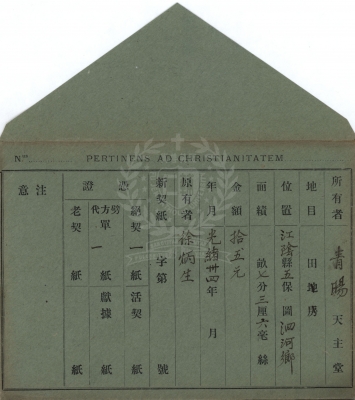 Nᵒᵒ PERTINENS AD CHRISTIANITATEM
所有者 青暘 天主堂
地目 田地房
位置 江陰縣五保 圖 泗河鄉
面績 畝七分三厘六毫 絲
金額 拾五元
年月 光緒卅四年 月
原有者 徐炳生
新契紙 字第 號
證 憑
絕契 一 紙 活契 紙
代方單 一 紙 獻據 紙
老契 紙
注意